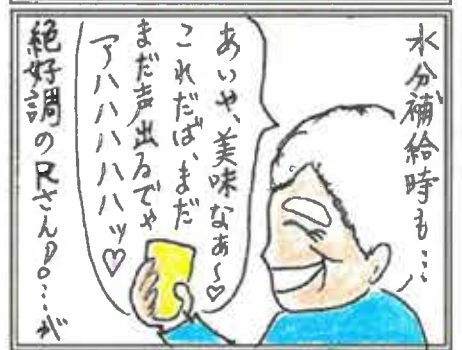 水分補給時も…
あいや、美味なぁ～♡
これだば、まだ
まだ声出るでゃ
アハハハハハッ♡
絶好調のRさんP。…が